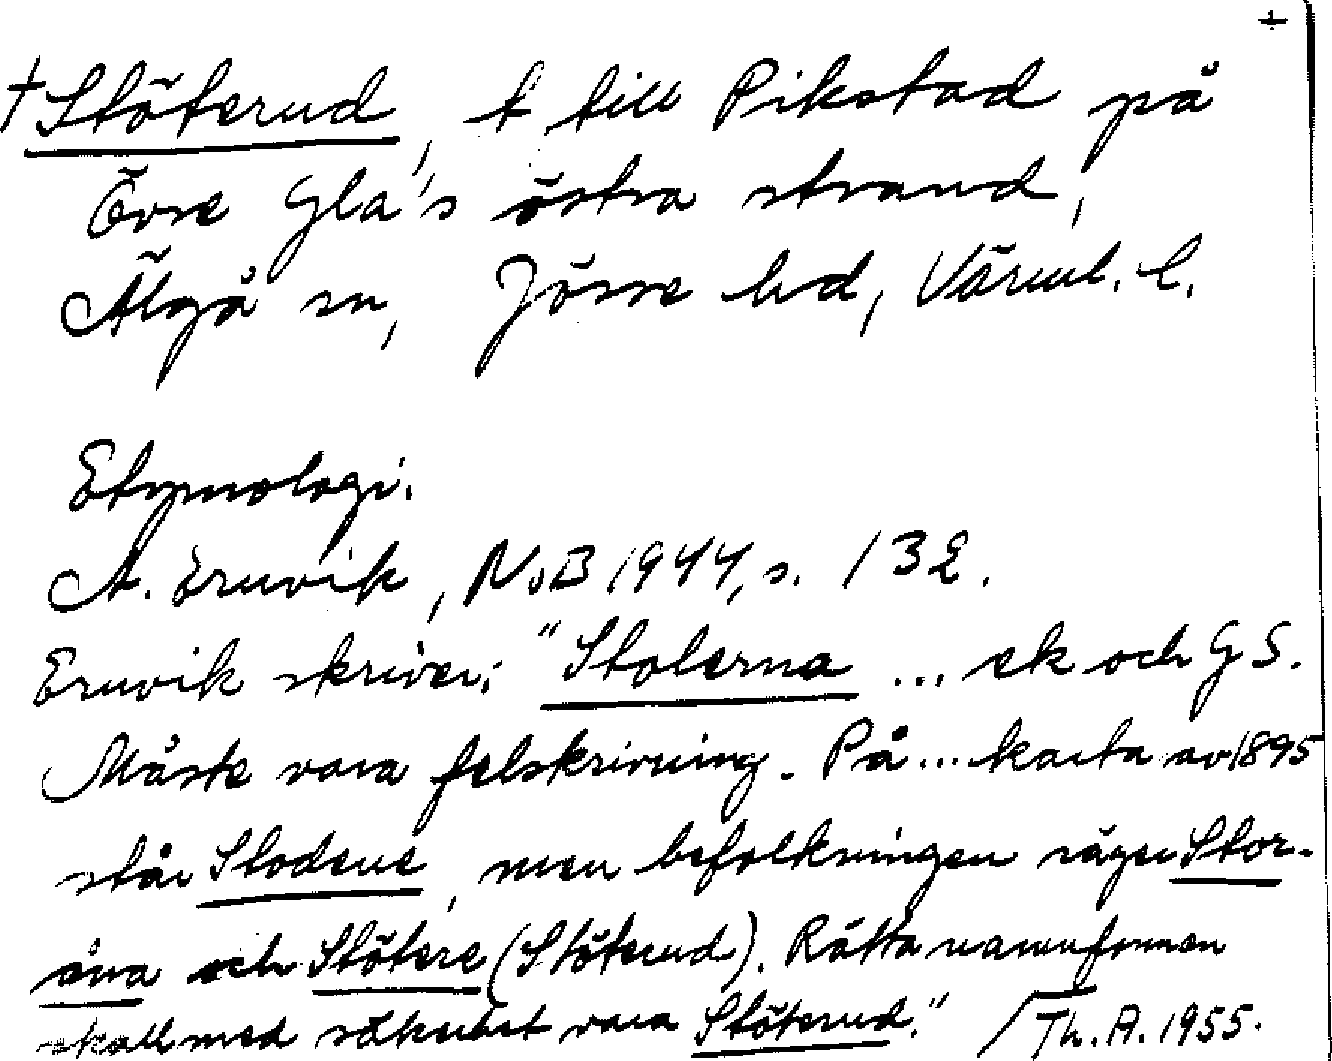 +
†Stöterud, t till Pikstad på
Övre Gla's östra strand,
Älgå sn, Jösse hd, Värml. l.
Etymologi.
A. Eruvik, NoB 1944, s. 132.
Eruvik skriver: "Stolerna ... ek och GS.
Måste vara felskrivning. På ... karta av 1895
står Stodene, men befolkningen säger Stor-
åna och Stötere (Stöterud). Rätta namnformen
skall med säkerhet vara Stöterud." /Th. A. 1955.